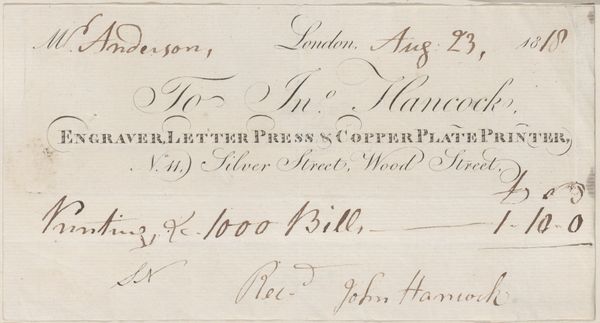 Mr. Anderson, London, Aug: 23, 1818
To Jno. Hancock,
ENGRAVER, LETTER PRESS & COPPER PLATE PRINTER,
No. 11, Silver Street, Wood Street.
Printing, &c. 1000 Bills 1-10-0
Recd. John Hancock